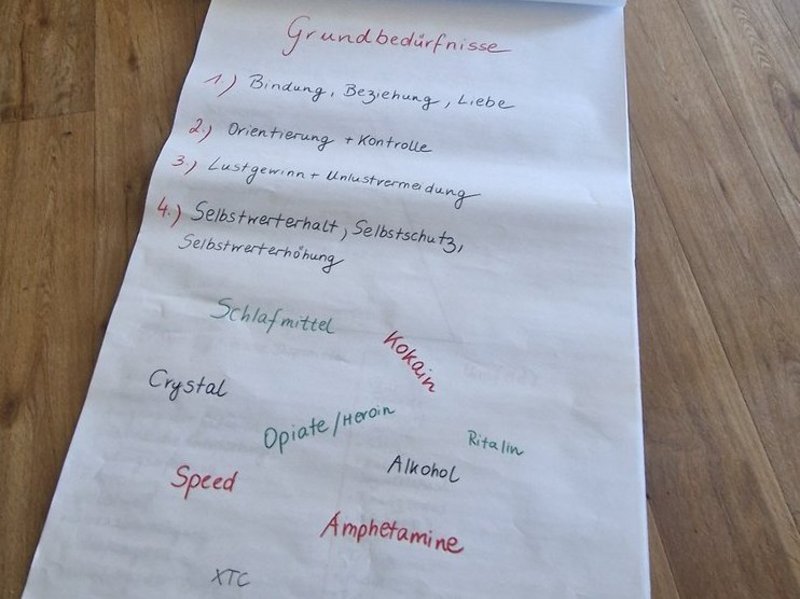 Grundbedürfnisse
1.) Bindung, Beziehung, Liebe
2.) Orientierung + Kontrolle
3.) Lustgewinn + Unlustvermeidung
4.) Selbstwerterhalt, Selbstschutz,
Selbstwerterhöhung
Schlafmittel
Kokain
Crystal
Opiate/Heroin
Ritalin
Alkohol
Speed
Amphetamine
XTC